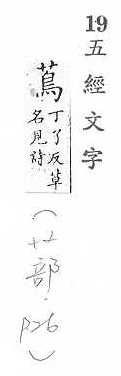 19
五經文字
蔦
丁了反草
名見詩
(艹部.
P26)